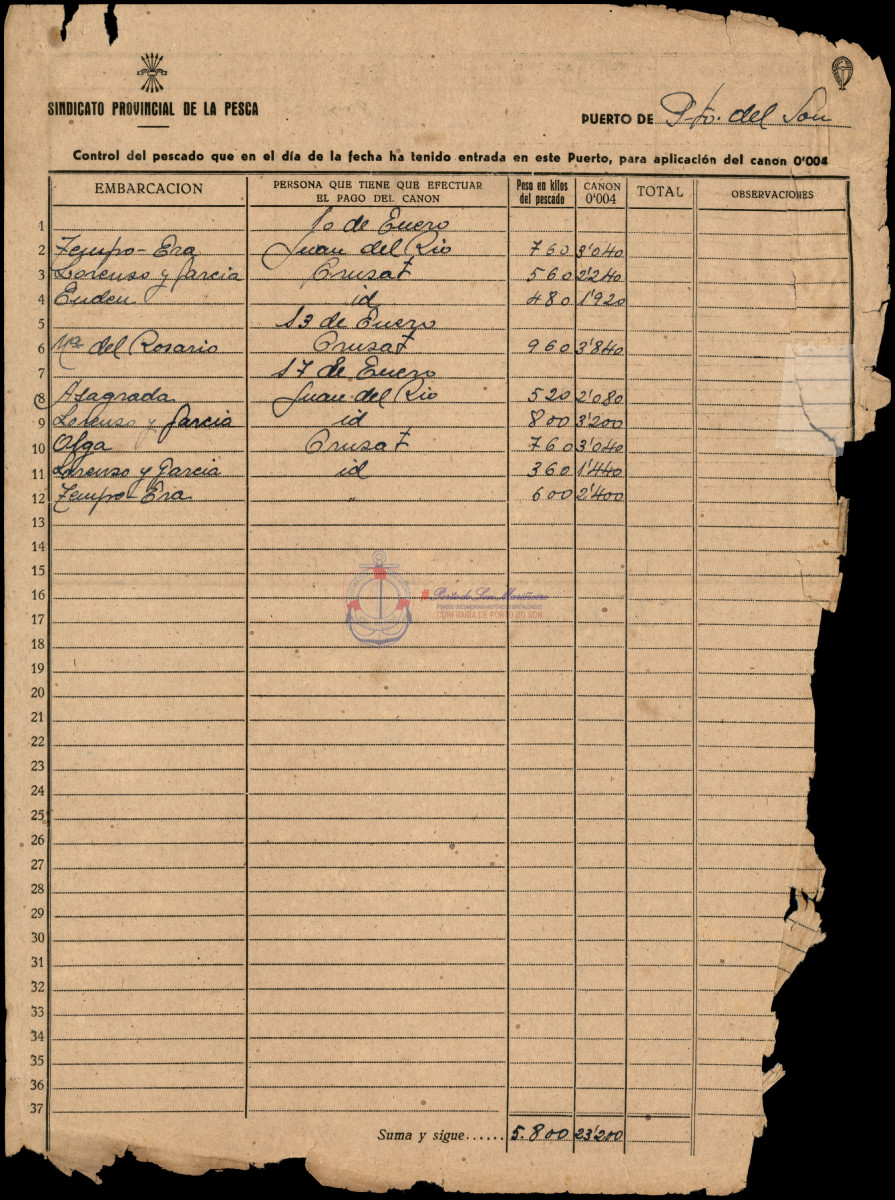 SINDICATO PROVINCIAL DE LA PESCA
PUERTO DE Pto. del Son
Control del pescado que en el día de la fecha ha tenido entrada en este Puerto, para aplicación del canon 0'004
EMBARCACION PERSONA QUE TIENE QUE EFECTUAR EL PAGO DEL CANON Peso en kilos del pescado CANON 0'004 TOTAL OBSERVACIONES
1 10 de Enero
2 Tempo-Era Juan del Rio 760 3'040
3 Lorenso y Garcia Crusat 560 2'240
4 id 480 1'920
5 13 de Enero
6 Mª del Rosario Crusat 960 3'840
7 17 de Enero
8 Asagrada Juan del Rio 520 2'080
9 Lorenso y Garcia id 800 3'200
10 Olga Crusat 760 3'040
11 Lorenso y Garcia id 360 1'440
12 Tempo-Era " 600 2'400
13
14
15
16
17
18
19
20
21
22
23
24
25
26
27
28
29
30
31
32
33
34
35
36
37
Suma y sigue...... 5.800 23'200
# Porto do Son Mariñeiro
CONFRARÍA DE PORTO DO SON